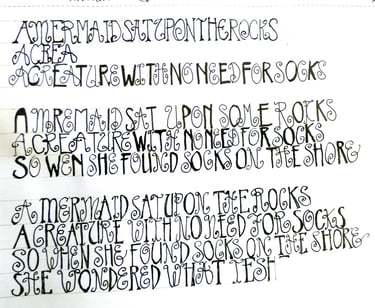 A MERMAID SAT UPON THE ROCKS
A CREA
A CREATURE WITH NO NEED FOR SOCKS
A MREMAID SAT UPON SOME ROCKS
A CREATERE WITH NO NEED FOR SOCKS
SO WEN SHE FOUND SOCKS ON THE SHORE
A MERMAID SAT UPON THE ROCKS
A CREATURE WITH NO NEED FOR SOCKS
SO WHEN SHE FOUND SOCKS ON THE SHORE
SHE WONDERED WHAT